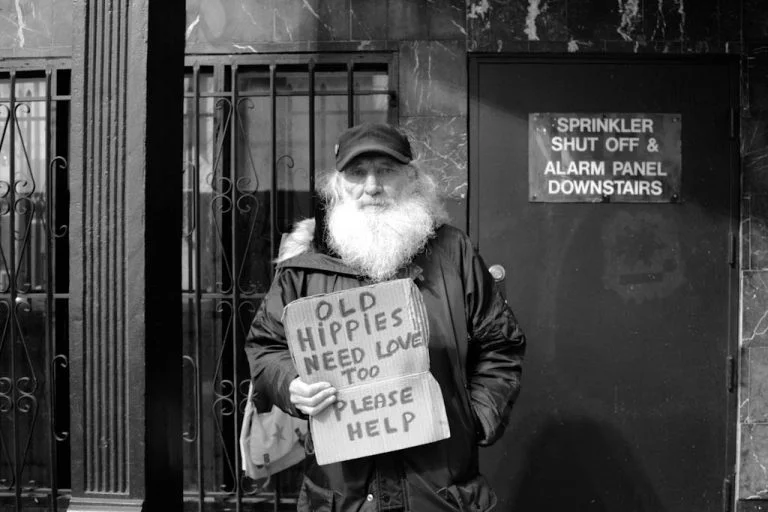 SPRINKLER
SHUT OFF &
ALARM PANEL
DOWNSTAIRS
OLD
HiPPiES
NEED LOVE
TOO
PLEASE
HELP